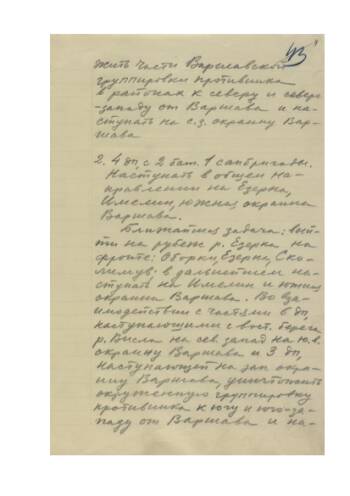 43
жить части Варшавской
группировки противника
в районах к северу и северо-
-западу от Варшава и на-
ступать на с.з. окраину Вар-
шава.
2. 4 дп, с 2 бат. 1 сапбригады.
Наступать в общем на-
правлении на Езерка,
Имелин, южная окраина
Варшава.
Ближайшая задача: вый-
ти на рубеж р. Езерка на
фронте: Оборки, Езерка, Ско-
лимув; в дальнейшем на-
ступать на Имелин и южная
окраина Варшава. Во вза-
имодействии с частями 6 дп,
наступающими с вост. берега
р. Висла на сев. запад на ю.в.
окраину Варшава и 3 дп,
наступающей на зап. окра-
ину Варшава, уничтожить
окруженную группировку
противника к югу и юго-за-
паду от Варшава и на-